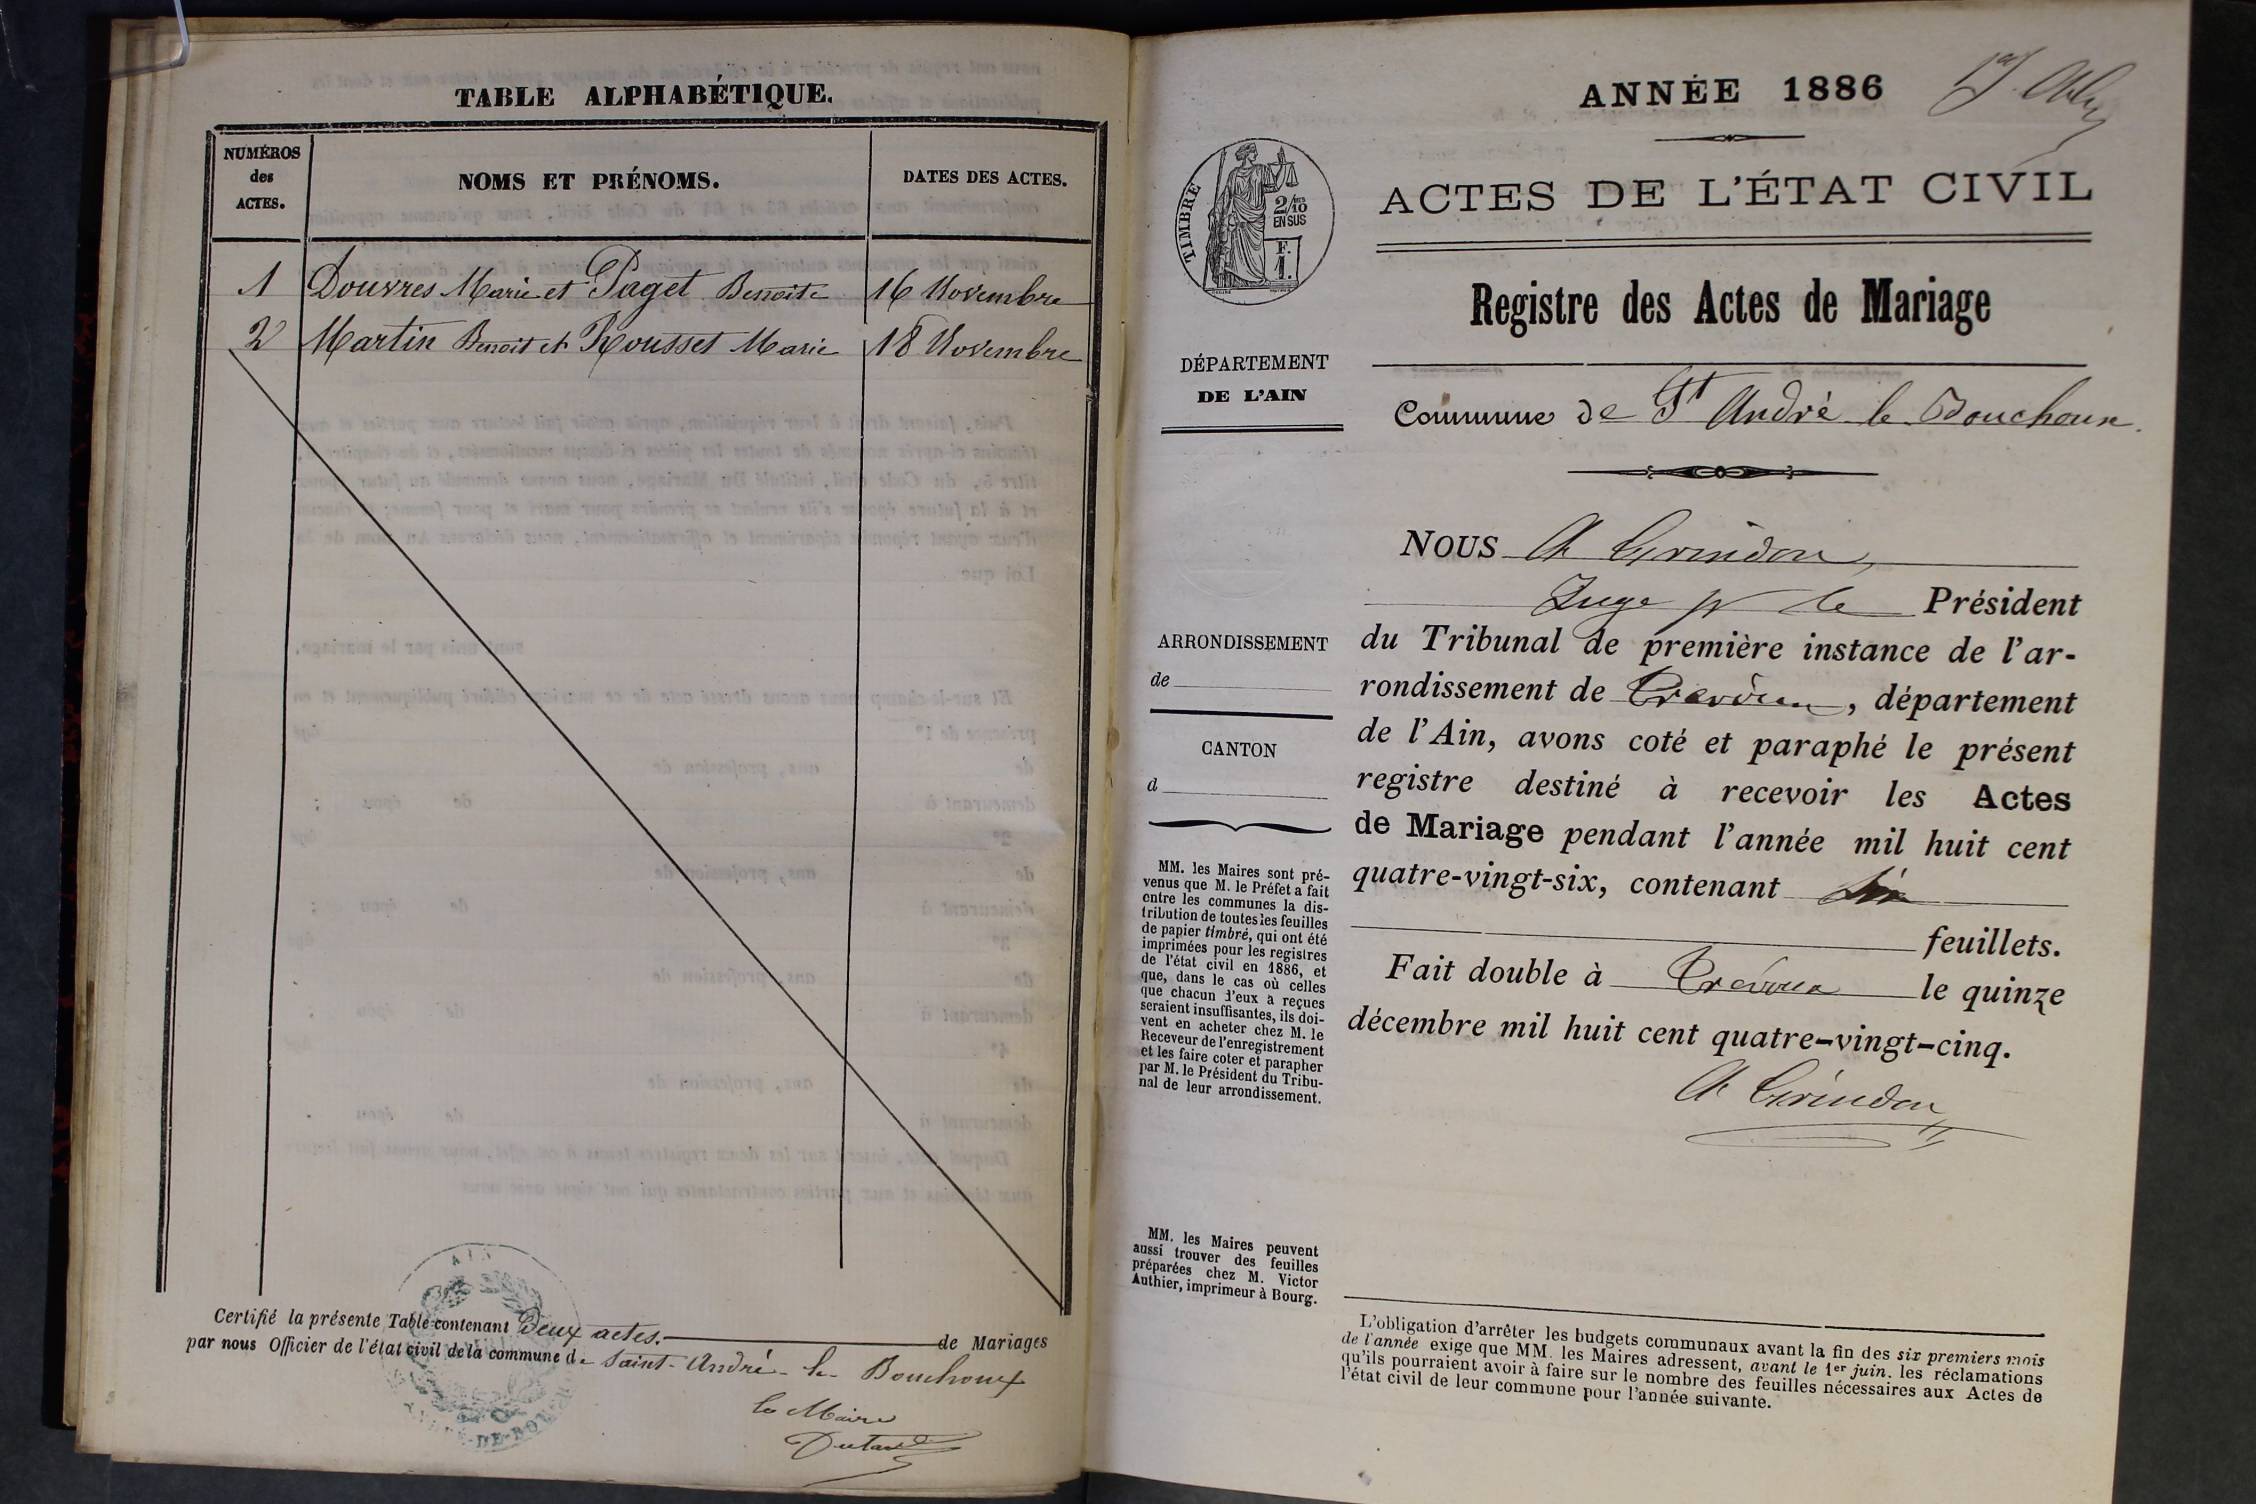 TABLE ALPHABÉTIQUE.
NUMÉROS
des
ACTES.
NOMS ET PRÉNOMS.
DATES DES ACTES.
1 Douvres Marie et Paget Benoite 16 Novembre
2 Martin Benoit et Rousset Marie 18 Novembre
Certifié la présente Table contenant Deux actes. de Mariages
par nous Officier de l'état civil de la commune de Saint-André-le-Bouchoux
le Maire
AIN
ANNÉE 1886
ACTES DE L'ÉTAT CIVIL
TIMBRE
2/10 EN SUS
F.
1.
Registre des Actes de Mariage
DÉPARTEMENT
DE L'AIN
Commune de St André le Bouchoux.
NOUS Ch Grindon,
Juge pr le Président
ARRONDISSEMENT
de
CANTON
d
du Tribunal de première instance de l'ar-
rondissement de Trévoux, département
de l'Ain, avons coté et paraphé le présent
registre destiné à recevoir les Actes
de Mariage pendant l'année mil huit cent
quatre-vingt-six, contenant six
feuillets.
Fait double à Trévoux le quinze
décembre mil huit cent quatre-vingt-cinq.
Ch Grindon
MM. les Maires sont pré-
venus que M. le Préfet a fait
entre les communes la dis-
tribution de toutes les feuilles
de papier timbré, qui ont été
imprimées pour les registres
de l'état civil en 1886, et
que, dans le cas où celles
que chacun d'eux a reçues
seraient insuffisantes, ils doi-
vent en acheter chez M. le
Receveur de l'enregistrement
et les faire coter et parapher
par M. le Président du Tribu-
nal de leur arrondissement.
MM. les Maires peuvent
aussi trouver des feuilles
préparées chez M. Victor
Authier, imprimeur à Bourg.
L'obligation d'arrêter les budgets communaux avant la fin des six premiers mois
de l'année exige que MM. les Maires adressent, avant le 1er juin, les réclamations
qu'ils pourraient avoir à faire sur le nombre des feuilles nécessaires aux Actes de
l'état civil de leur commune pour l'année suivante.